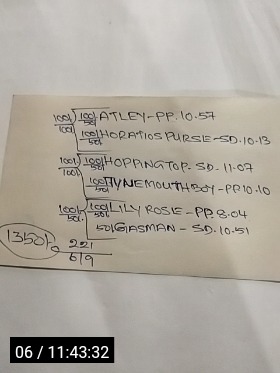 100/100/ 100/50/ ATLEY-PP.10.57
100/50/ HORATIOS PURSE-SD.10.13
100/100/ 100/50/ HOPPING TOP. SD-11.07
100/50/ TYNEMOUTH BOY-PP.10.10
100/50/. 100/50/ LILY ROSE-PP.8.04
50/ GASMAN- SD.10.51
1350/
221
619
06 / 11:43:32